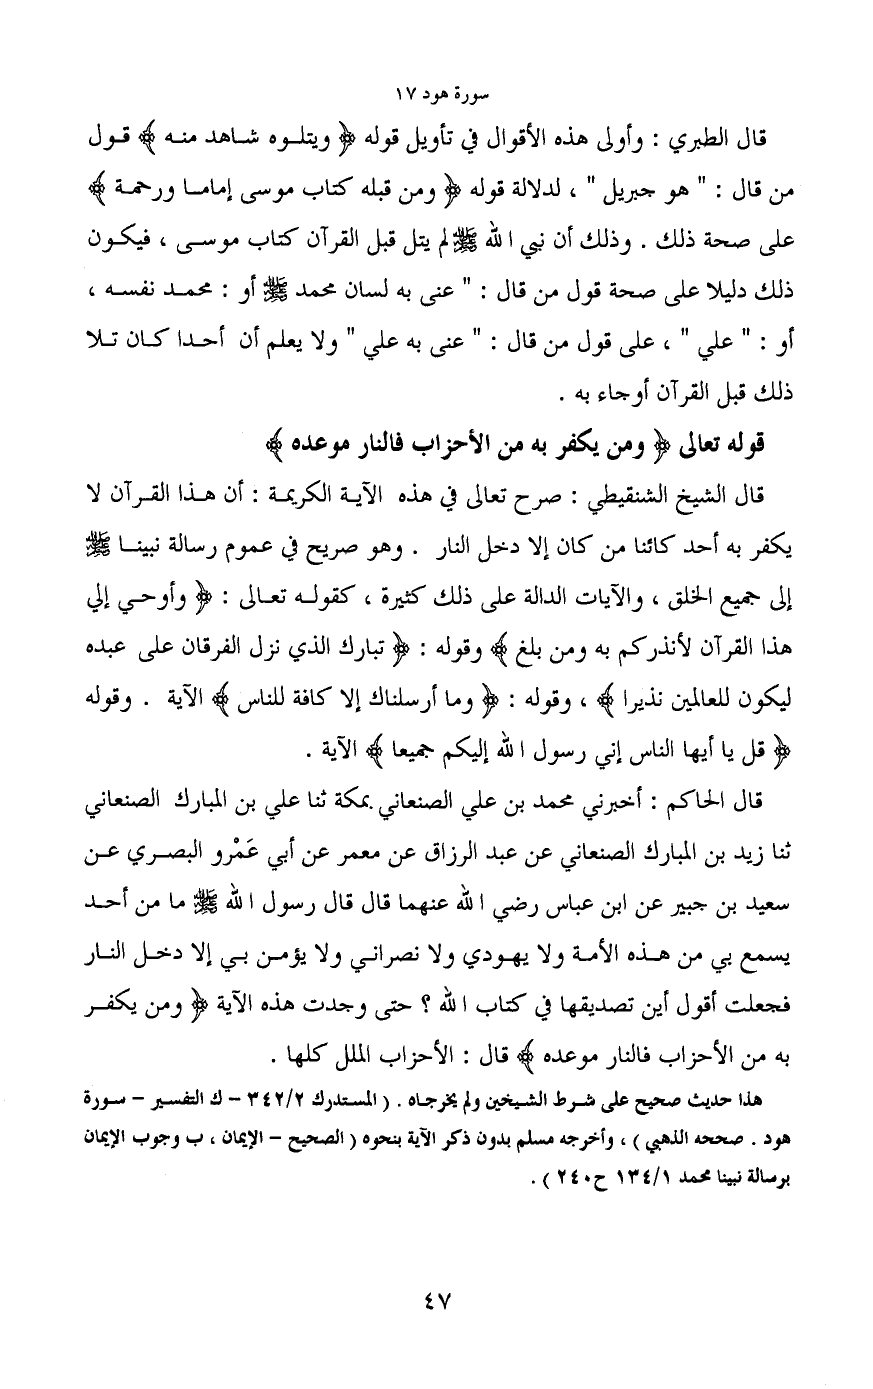 سورة هود ١٧
قال الطبري : وأولى هذه الأقوال في تأويل قوله ﴿ ويتلـوه شاهد منـه ﴾ قـول
من قال : " هو جبريل " ، لدلالة قوله ﴿ ومن قبله كتاب موسى إمامـا ورحمـة ﴾
على صحة ذلك . وذلك أن نبي الله ﷺ لم يتل قبل القرآن كتاب موسـى ، فيكـون
ذلك دليلا على صحة قول من قال : " عنى به لسان محمد ﷺ أو : محمـد نفسـه ،
أو : " علي " ، على قول من قال : " عنى به علي " ولا يعلم أن أحـدا كـان تـلا
ذلك قبل القرآن أوجاء به .
قوله تعالى ﴿ ومن يكفر به من الأحزاب فالنار موعده ﴾
قال الشيخ الشنقيطي : صرح تعالى في هذه الآيـة الكريمـة : أن هـذا القـرآن لا
يكفر به أحد كائنا من كان إلا دخل النار . وهو صريح في عموم رسالة نبينـا ﷺ
إلى جميع الخلق ، والآيات الدالة على ذلك كثيرة ، كقولـه تعـالى : ﴿ وأوحـي إلي
هذا القرآن لأنذركم به ومن بلغ ﴾ وقوله : ﴿ تبارك الذي نزل الفرقان على عبده
ليكون للعالمين نذيرا ﴾ ، وقوله : ﴿ وما أرسلناك إلا كافة للناس ﴾ الآية . وقوله
﴿ قل يا أيها الناس إني رسول الله إليكم جميعا ﴾ الآية .
قال الحاكم : أخبرني محمد بن علي الصنعاني بمكة ثنا علي بن المبارك الصنعاني
ثنا زيد بن المبارك الصنعاني عن عبد الرزاق عن معمر عن أبي عَمْرو البصـري عـن
سعيد بن جبير عن ابن عباس رضي الله عنهما قال قال رسول الله ﷺ ما من أحـد
يسمع بي من هـذه الأمـة ولا يهـودي ولا نصرانـي ولا يؤمـن بـي إلا دخـل النـار
فجعلت أقول أين تصديقها في كتاب الله ؟ حتى وجدت هذه الآية ﴿ ومن يكفـر
به من الأحزاب فالنار موعده ﴾ قال : الأحزاب الملل كلها .
هذا حديث صحيح على شرط الشيخين ولم يخرجاه . ( المستدرك ٣٤٢/٢ – ك التفسير – سورة
هود . صححه الذهبي ) ، وأخرجه مسلم بدون ذكر الآية بنحوه ( الصحيح – الإيمان ، ب وجوب الإيمان
برسالة نبينا محمد ١٣٤/١ ح٢٤٠ ) .
٤٧